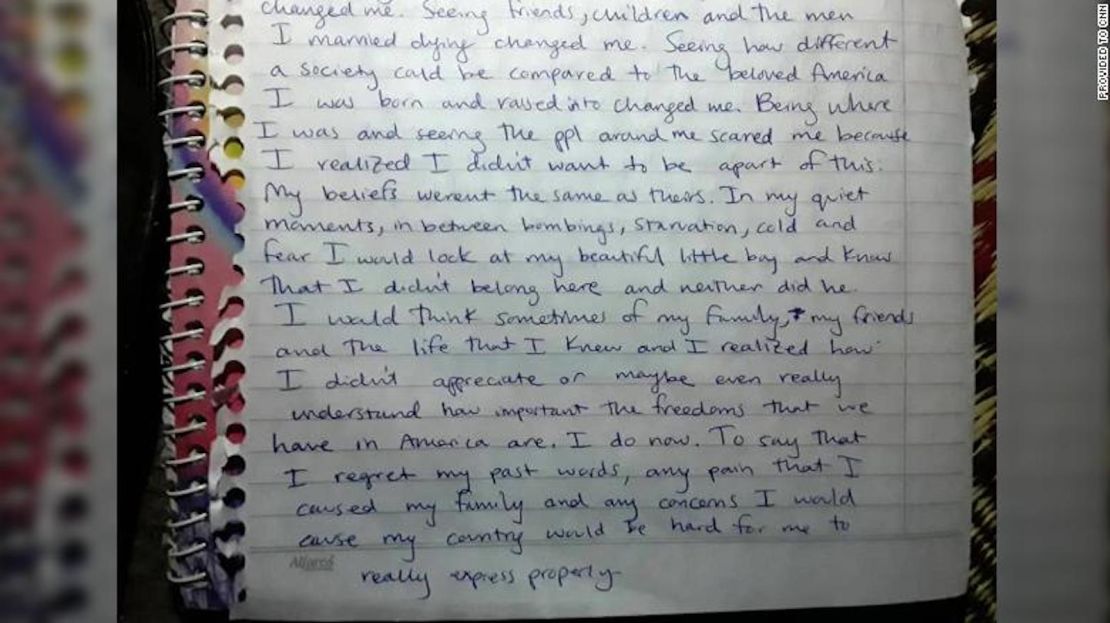 changed me. Seeing friends, children and the men
I married dying changed me. Seeing how different
a society cald be compared to the beloved America
I was born and raised into changed me. Being where
I was and seeing the ppl arand me scared me because
I realized I didn't want to be apart of this.
My beliefs werent the same as theirs. In my quiet
moments, in between bombings, starvation, cold and
fear I would look at my beautiful little boy and know
that I didn't belong here and neither did he.
I would think sometimes of my family, + my friends
and the life that I knew and I realized how
I didn't appreciate or maybe even really
understand how important the freedoms that we
have in America are. I do now. To say that
I regret my past words, any pain that I
caused my family and any concerns I would
cause my country would be hard for me to
really express properly
PROVIDED TO CNN